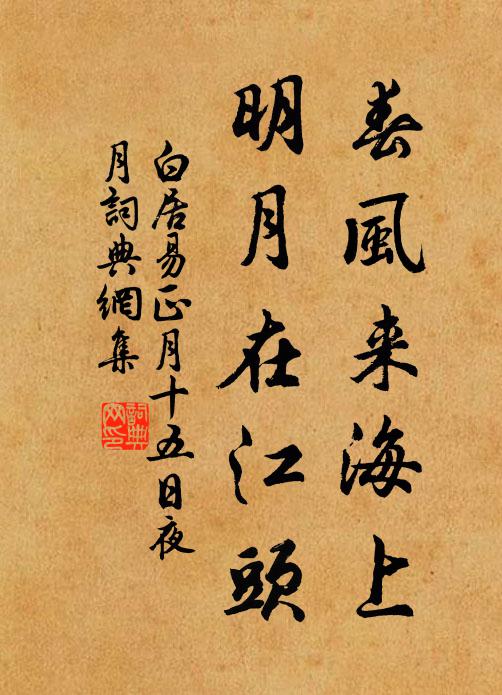 春風来海上
明月在江頭
白居易正月十五日夜
月詞典網集
詞典
网印